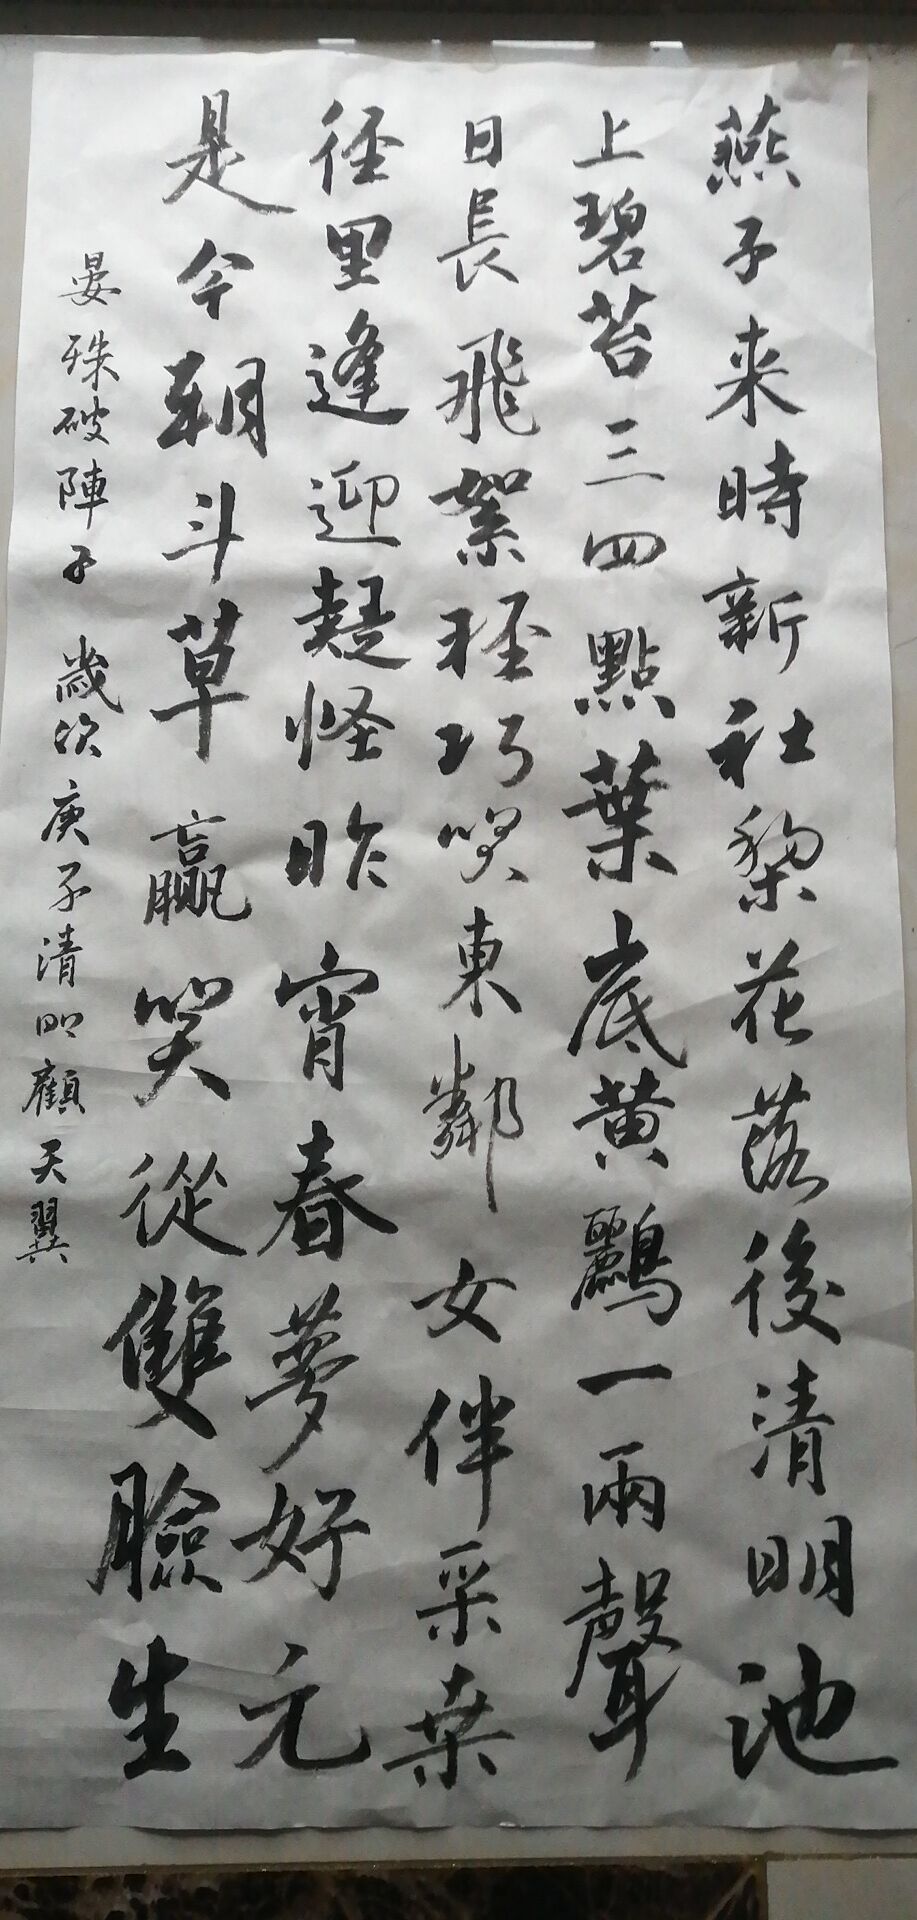 燕子来時新社棃花落後清明池
上碧苔三四點葉底黄鸝一兩聲
日長飛絮輕巧笑東鄰女伴采桒
徑里逢迎疑怪昨宵春夢好元
是今朝斗草贏笑從雙臉生
晏殊破陣子 歲次庚子清明顧天翼